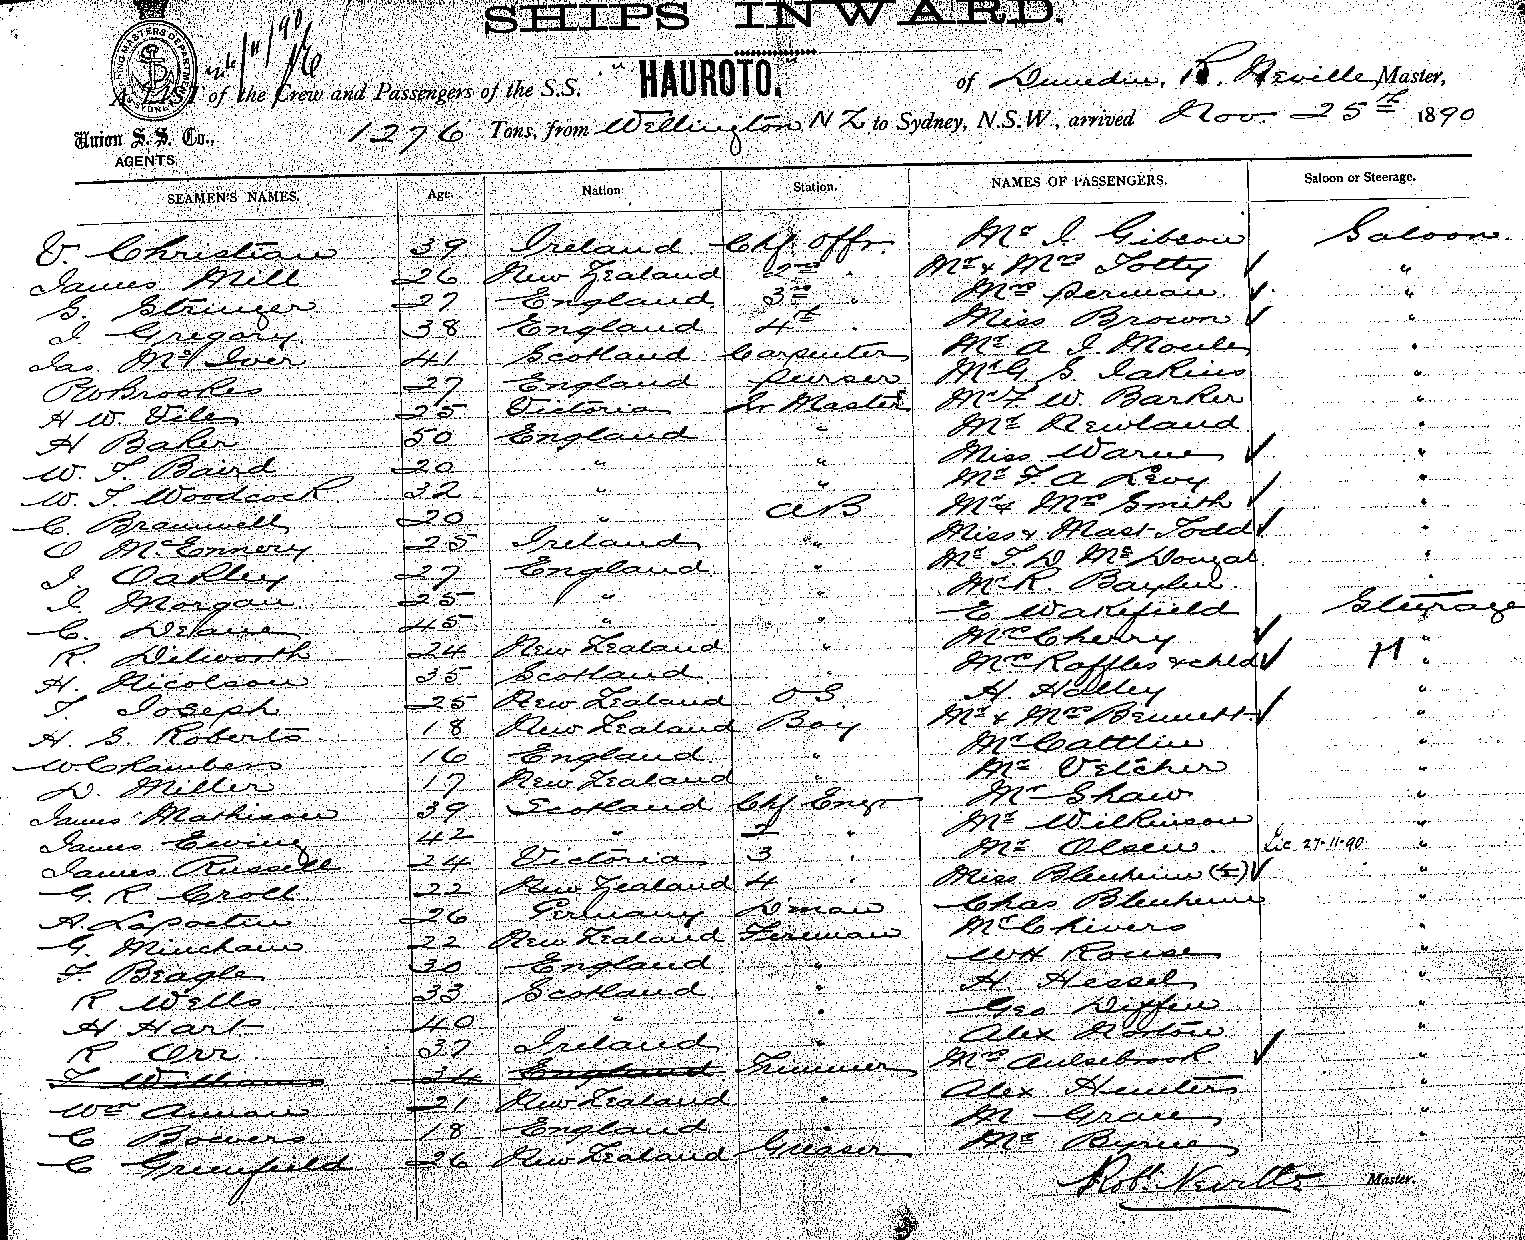 SHIPS INWARD.
26/11/90
A LIST of the Crew and Passengers of the S.S. "HAUROTO." of Dunedin, R. Neville, Master,
Union S.S. Co., AGENTS.
1276 Tons, from Wellington NZ to Sydney, N.S.W., arrived Nov. 25th 1890
SEAMEN'S NAMES. Age. Nation. Station. NAMES OF PASSENGERS. Saloon or Steerage.
V. Christian 39 Ireland Chf. Offr. Mr I. Gibson Saloon
James Mill 26 New Zealand 2nd " Mr & Mrs Totty "
G. Stringer 27 England 3rd " Mrs Perman "
I. Gregory 38 England 4th " Miss Brown "
Jas. McIver 41 Scotland Carpenter Mr A I. Moule "
Brookes 27 England Purser Mr G. Iakins "
H W. Vile 25 Victoria Lr Master Mr F. W. Barker "
H Baker 50 England " Mr Newland "
W. T. Baird 20 " " Miss Warne "
W. T. Woodcock 32 " " Mr F A Levy "
C. Bramwell 20 " AB Mr & Mrs Smith "
O McEnnery 25 Ireland " Miss & Mast Todd "
J. Oakley 27 England " Mr T. D. McDougal "
I. Morgan 25 " " Mr R. Baylin "
C. Deane 45 " " E Wakefield Steerage
R. Dilworth 24 New Zealand " Mrs Cherry "
H. Nicolson 35 Scotland " Mrs Raffles & chld "
T. Joseph 25 New Zealand O.S. H Holley "
H. G. Roberts 18 New Zealand Boy Mr & Mrs Bennett "
W Chambers 16 England " Mr Cattlin "
D. Miller 17 New Zealand " Mr Vetcher "
James Mathison 39 Scotland Chf Engr Mr Shaw "
James Ewing 42 " 2 " Mr Wilkinson "
James Russell 24 Victoria 3 " Mr Olsen Lic 27-11-90 "
G. R Groll 22 New Zealand 4 " Miss Blenheim (2) "
A. Lapoctin 26 Germany D'man Chas Blenheim "
G. Mincham 22 New Zealand Fireman Mr Chivers "
F. Beagle 30 England " W H Rouse "
R Wells 33 Scotland " H Hessel "
H Hart 40 " " Geo Diffin "
R Orr 37 Ireland " Alex Norton "
T Williams 34 England Trimmer Mrs Aulsebrook "
Wm Annan 21 New Zealand " Alex Hunter "
C Bowers 18 England " M Grace "
C Greenfield 26 New Zealand Greaser Mr Byrne "
Robt. Neville Master.